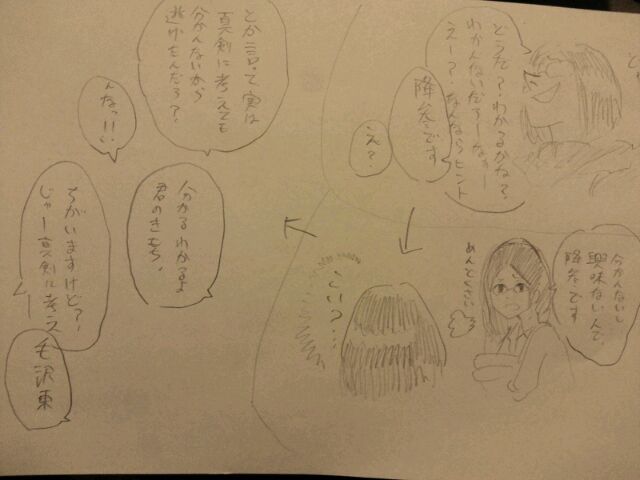 どうだ?わかるかな?
わかんないだろーなー
えー?なんならヒント
降参です
え?
分かんないし
興味ないんで、
降参です
めんどくさい
とか言って実は
真剣に考えても
分かんないから
逃げたんだろ?
んなっ!!
分かるわかるよ
君のきもち。
ちがいますけど?
じゃー真剣に考え
毛沢東